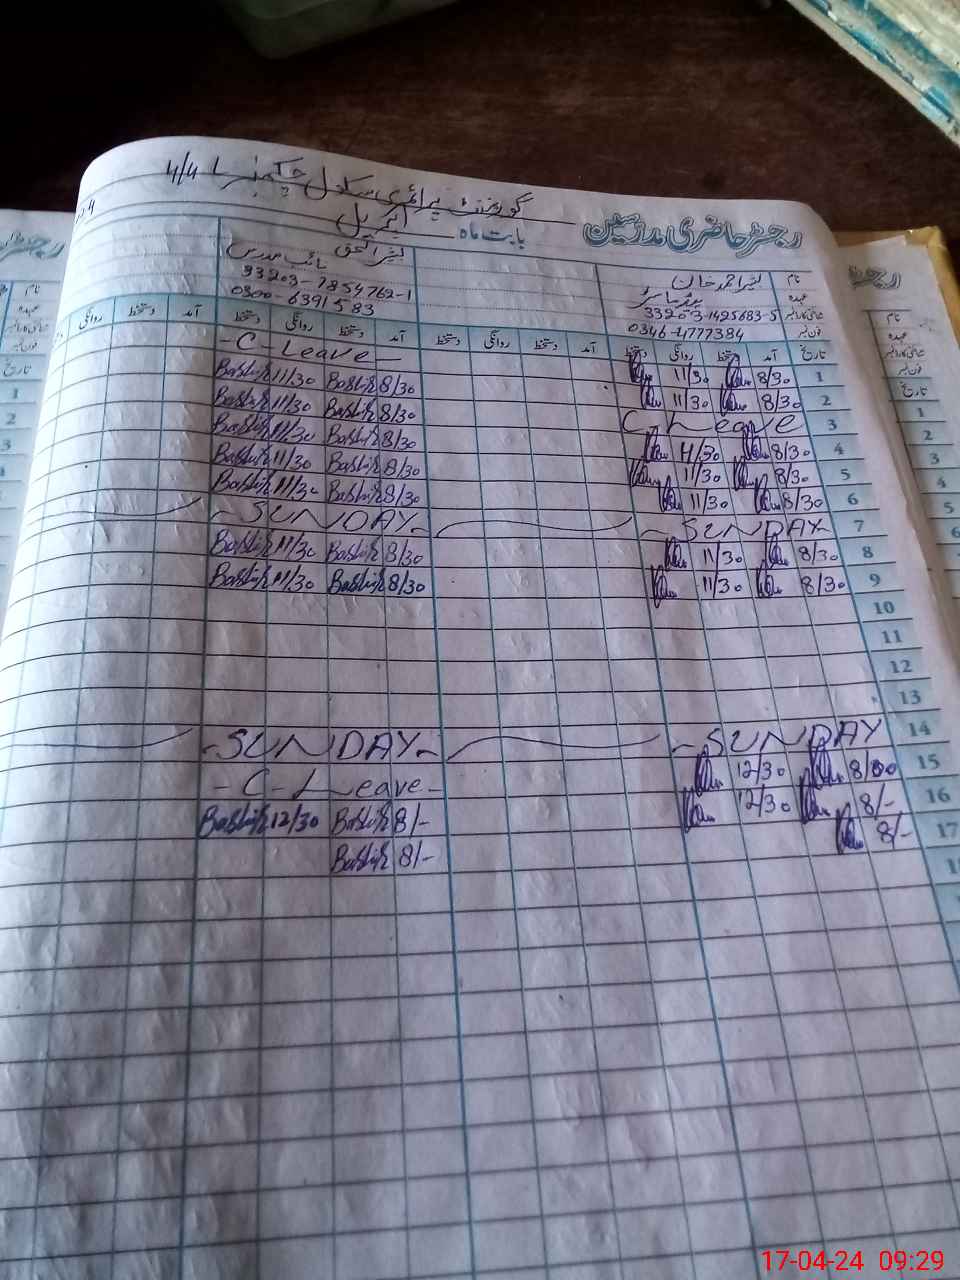 گورنمنٹ پرائمری سکول چک نمبر 4/4
رجسٹر حاضری مدرسین
بابت ماہ اپریل
نام بشیر احمد خان
عہدہ
شناختی کارڈ نمبر 33203-1425683-5
فون نمبر 0346-4777384
بشیر الحق
نائب مدرس
33203-7854762-1
0300-6391583
تاریخ آمد دستخط روانگی دستخط آمد دستخط روانگی دستخط آمد دستخط روانگی دستخط آمد دستخط روانگی
1 8/30 11/30 -C-Leave-
2 8/30 11/30 8/30 Bashir 11/30 Bashir
3 C-Leave 8/30 Bashir 11/30 Bashir
4 8/30 11/30 8/30 Bashir 11/30 Bashir
5 8/30 11/30 8/30 Bashir 11/30 Bashir
6 8/30 11/30 8/30 Bashir 11/30 Bashir
7 -SUNDAY -SUNDAY-
8 8/30 11/30 8/30 Bashir 11/30 Bashir
9 8/30 11/30 8/30 Bashir 11/30 Bashir
10
11
12
13
14 -SUNDAY -SUNDAY-
15 8/00 12/30 -C-Leave-
16 8/- 12/30 8/- Bashir 12/30 Bashir
17 8/- 8/- Bashir
رجسٹر
نام
عہدہ
شناختی کارڈ نمبر
فون نمبر
تاریخ
1
2
3
4
5
6
17-04-24 09:29